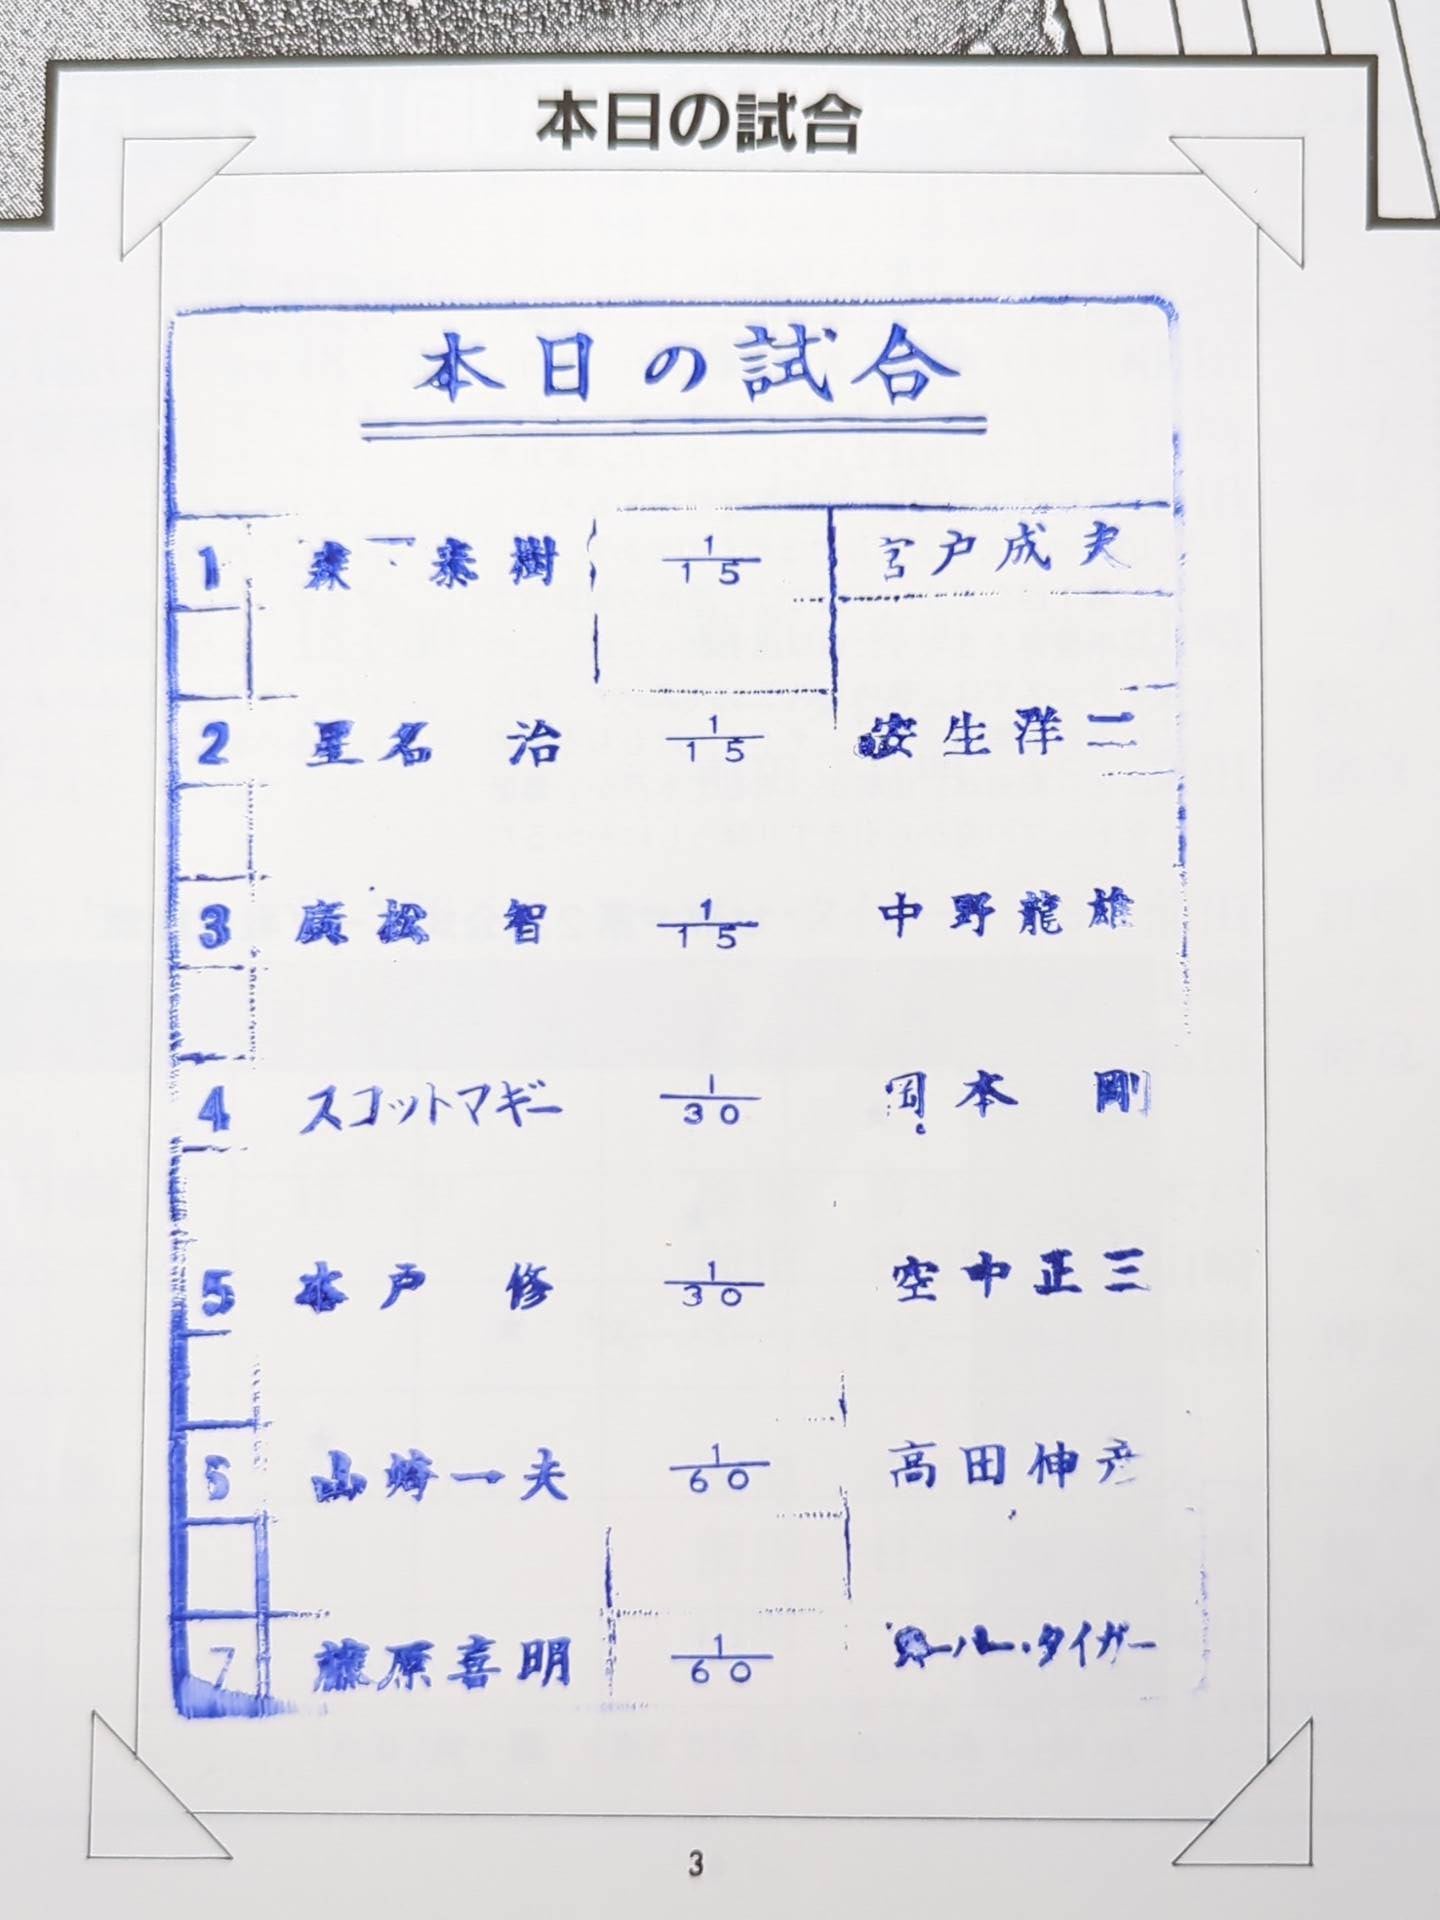 本日の試合
本日の試合
1 森 泰樹 1/15 宮戸成夫
2 星名 治 1/15 安生洋二
3 廣松 智 1/15 中野龍雄
4 スコットマギー 1/30 岡本 剛
5 木戸 修 1/30 空中正三
6 山崎一夫 1/60 高田伸彦
7 藤原喜明 1/60 ・タイガー
3